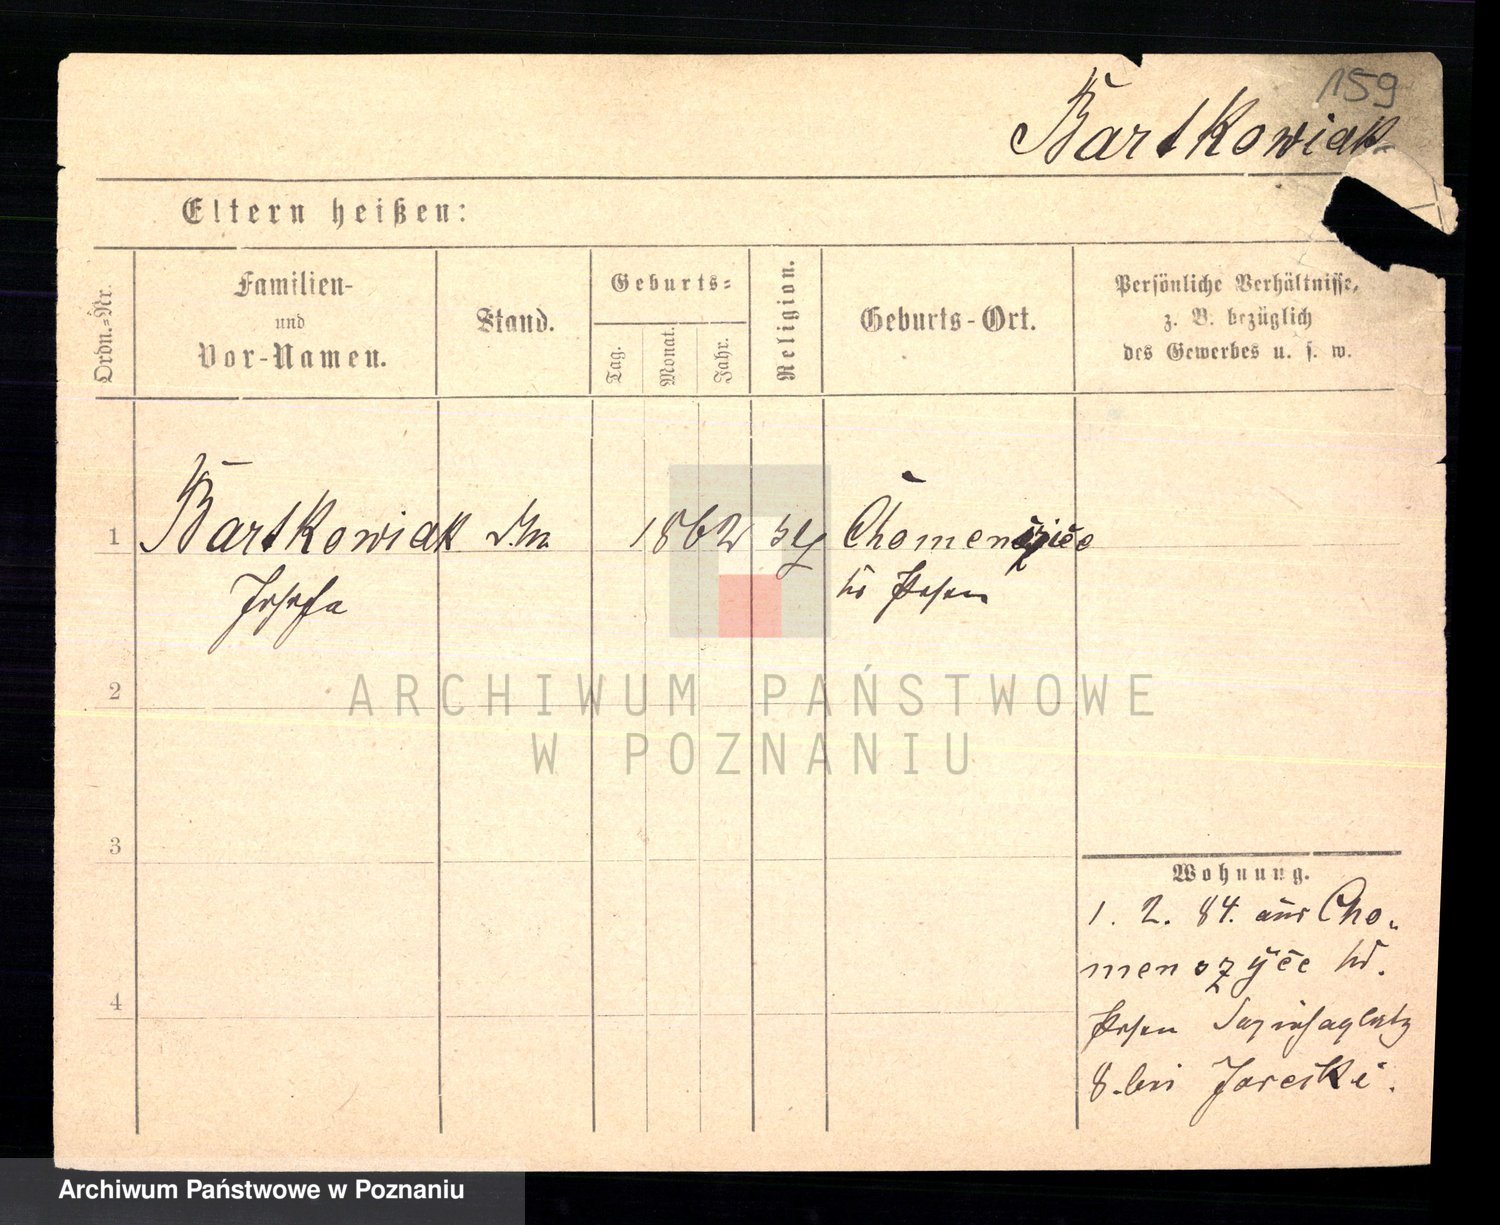 159
Bartkowiak
Eltern heißen:
Ordn.=Nr.
Familien-
und
Vor-Namen.
Stand.
Geburts=
Tag.
Monat.
Jahr.
Religion.
Geburts-Ort.
Persönliche Verhältnisse,
z. B. bezüglich
des Gewerbes u. s. w.
1 Bartkowiak 1862
Josefa
Kr Posen
2
3
4
Wohnung.
1. 2. 84. aus Cho-
menozyce Kr.
Posen Sapiehaplatz
8. bei Jareski.
ARCHIWUM PAŃSTWOWE
W POZNANIU
Archiwum Państwowe w Poznaniu